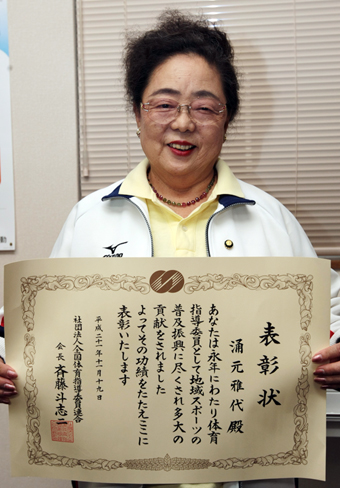 表彰状
涌元雅代 殿
あなたは永年にわたり体育
指導委員として地域スポーツの
普及振興に尽くされ多大の
貢献をされました
よってその功績をたたえここに
表彰いたします
平成二十一年十一月十九日
社団法人全国体育指導委員連合
会長 斉藤斗志二